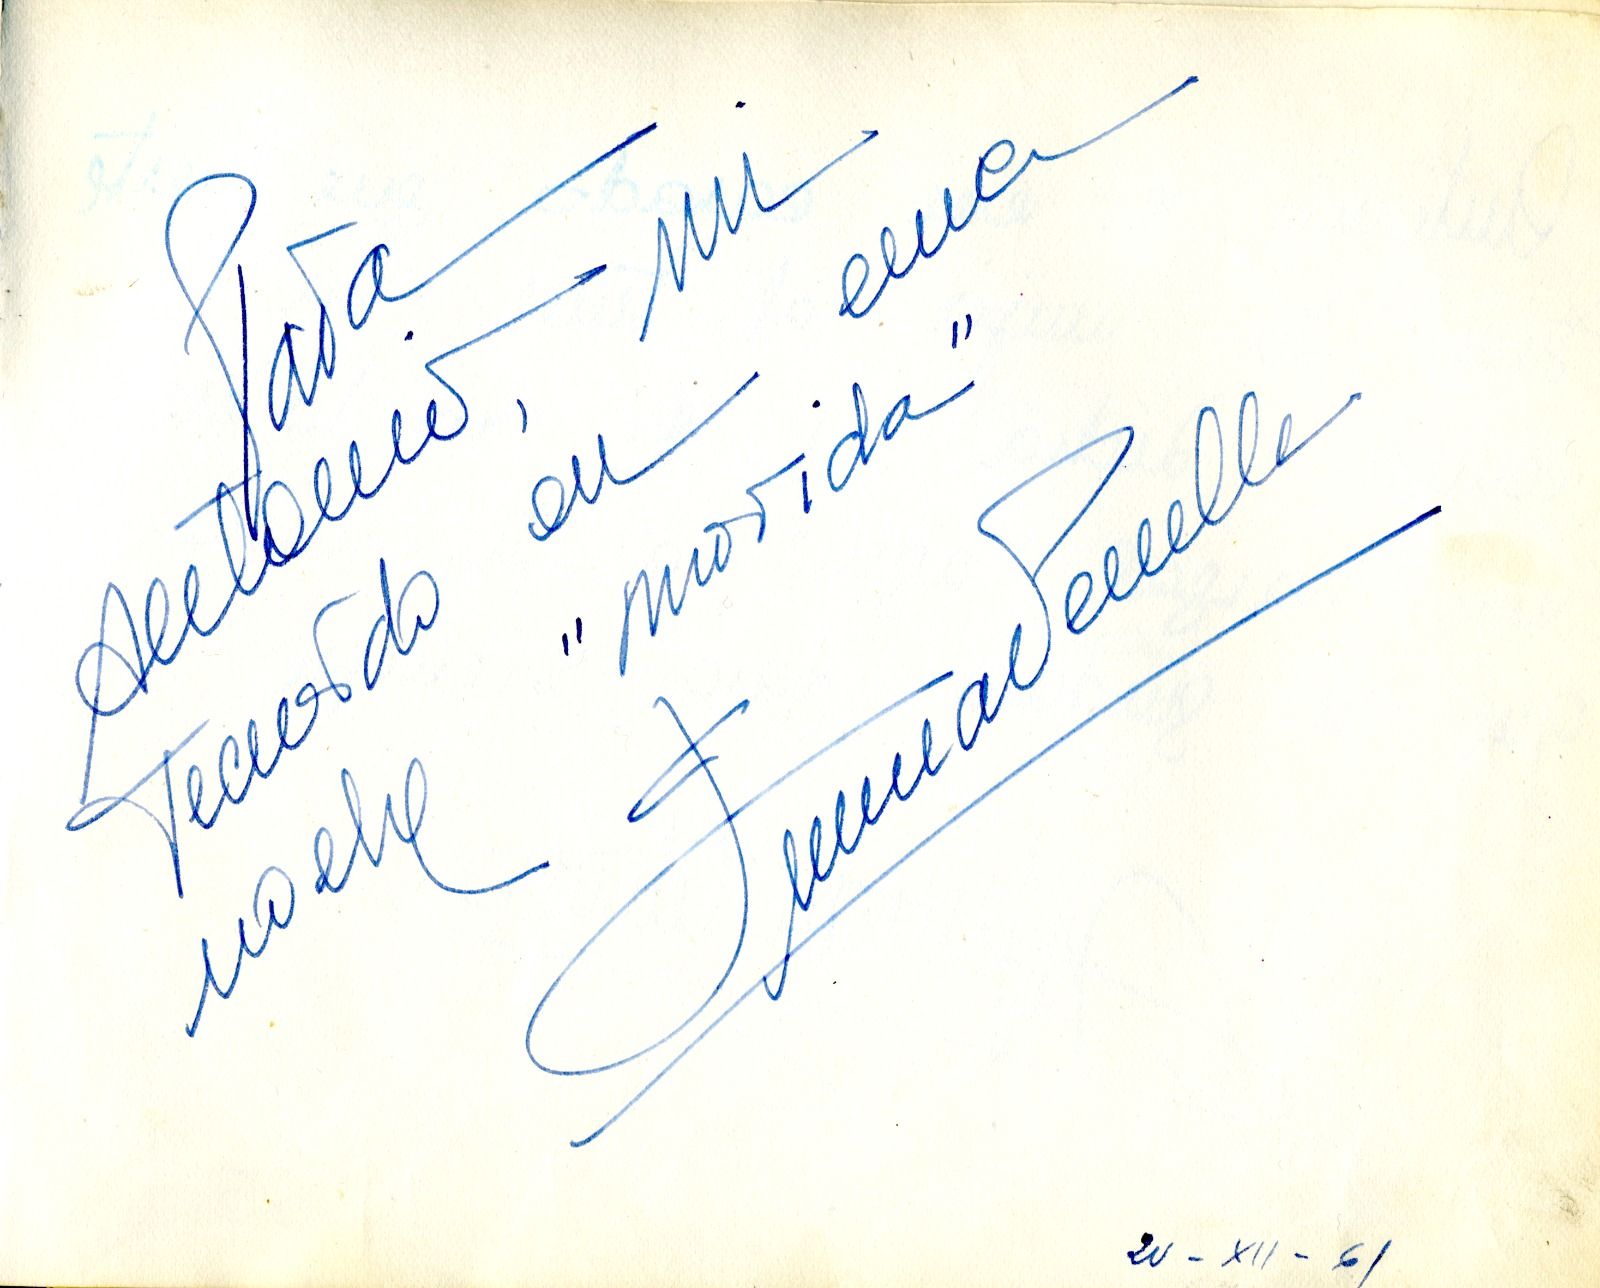 Para
Antonio, mi
recuerdo en una
noche "movida"
Emma Penella
20 - XII - 61